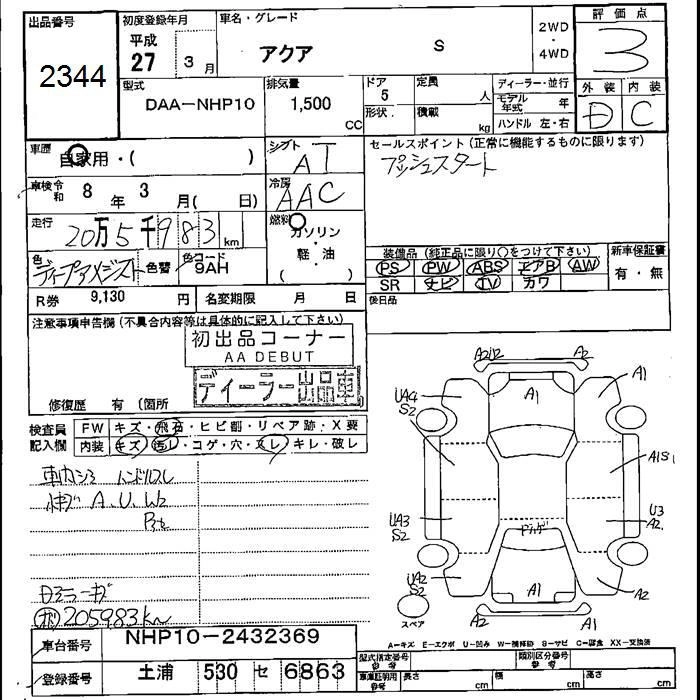 出品番号
2344
初度登録年月
平成
27 3月
車名・グレード
アクア S
2WD
・
4WD
評価点
3
外装 内装
D C
型式
DAA-NHP10
排気量
1,500
CC
ドア
5
形状
定員
人
積載
kg
ディーラー・並行
モデル年式 年
ハンドル 左・右
車歴
自家用・( )
シフト
AT
セールスポイント(正常に機能するものに限ります)
プッシュスタート
車検 令和 8年 3月( 日)
冷房
AAC
走行
20万5千983km
燃料
ガソリン
・
軽・油
( )
色
ディープアメジスト
色替
色コード
9AH
装備品(純正品に限り○をつけて下さい)
PS PW ABS エアB AW
SR ナビ TV カワ
後日品
新車保証書
有・無
R券 9,130円
名変期限 月 日
注意事項申告欄(不具合内容等は具体的に記入して下さい)
初出品コーナー
AA DEBUT
ディーラー出品車
修復歴 有(箇所
検査員記入欄
FW キズ・飛石・ヒビ割・リペア跡・X要
内装 キズ・汚レ・コゲ・穴・スレ・キレ・破レ
車内シミ ハンドルスレ
キズ A.U.W2
205983km
車台番号
NHP10-2432369
登録番号
土浦 530 セ 6863
A2W2
A2
A1
UA4
S2
A1
A1S1
UA3
S2
U3
A2
UA2
S2
A1
A2
スペア
A2
A1
A=キズ E=エクボ U=凹み W=補修跡 S=サビ C=腐食 XX=交換済
型式指定番号
参考
類別区分番号
参考
車庫証明用
参考
長さ cm
幅 cm
高さ cm